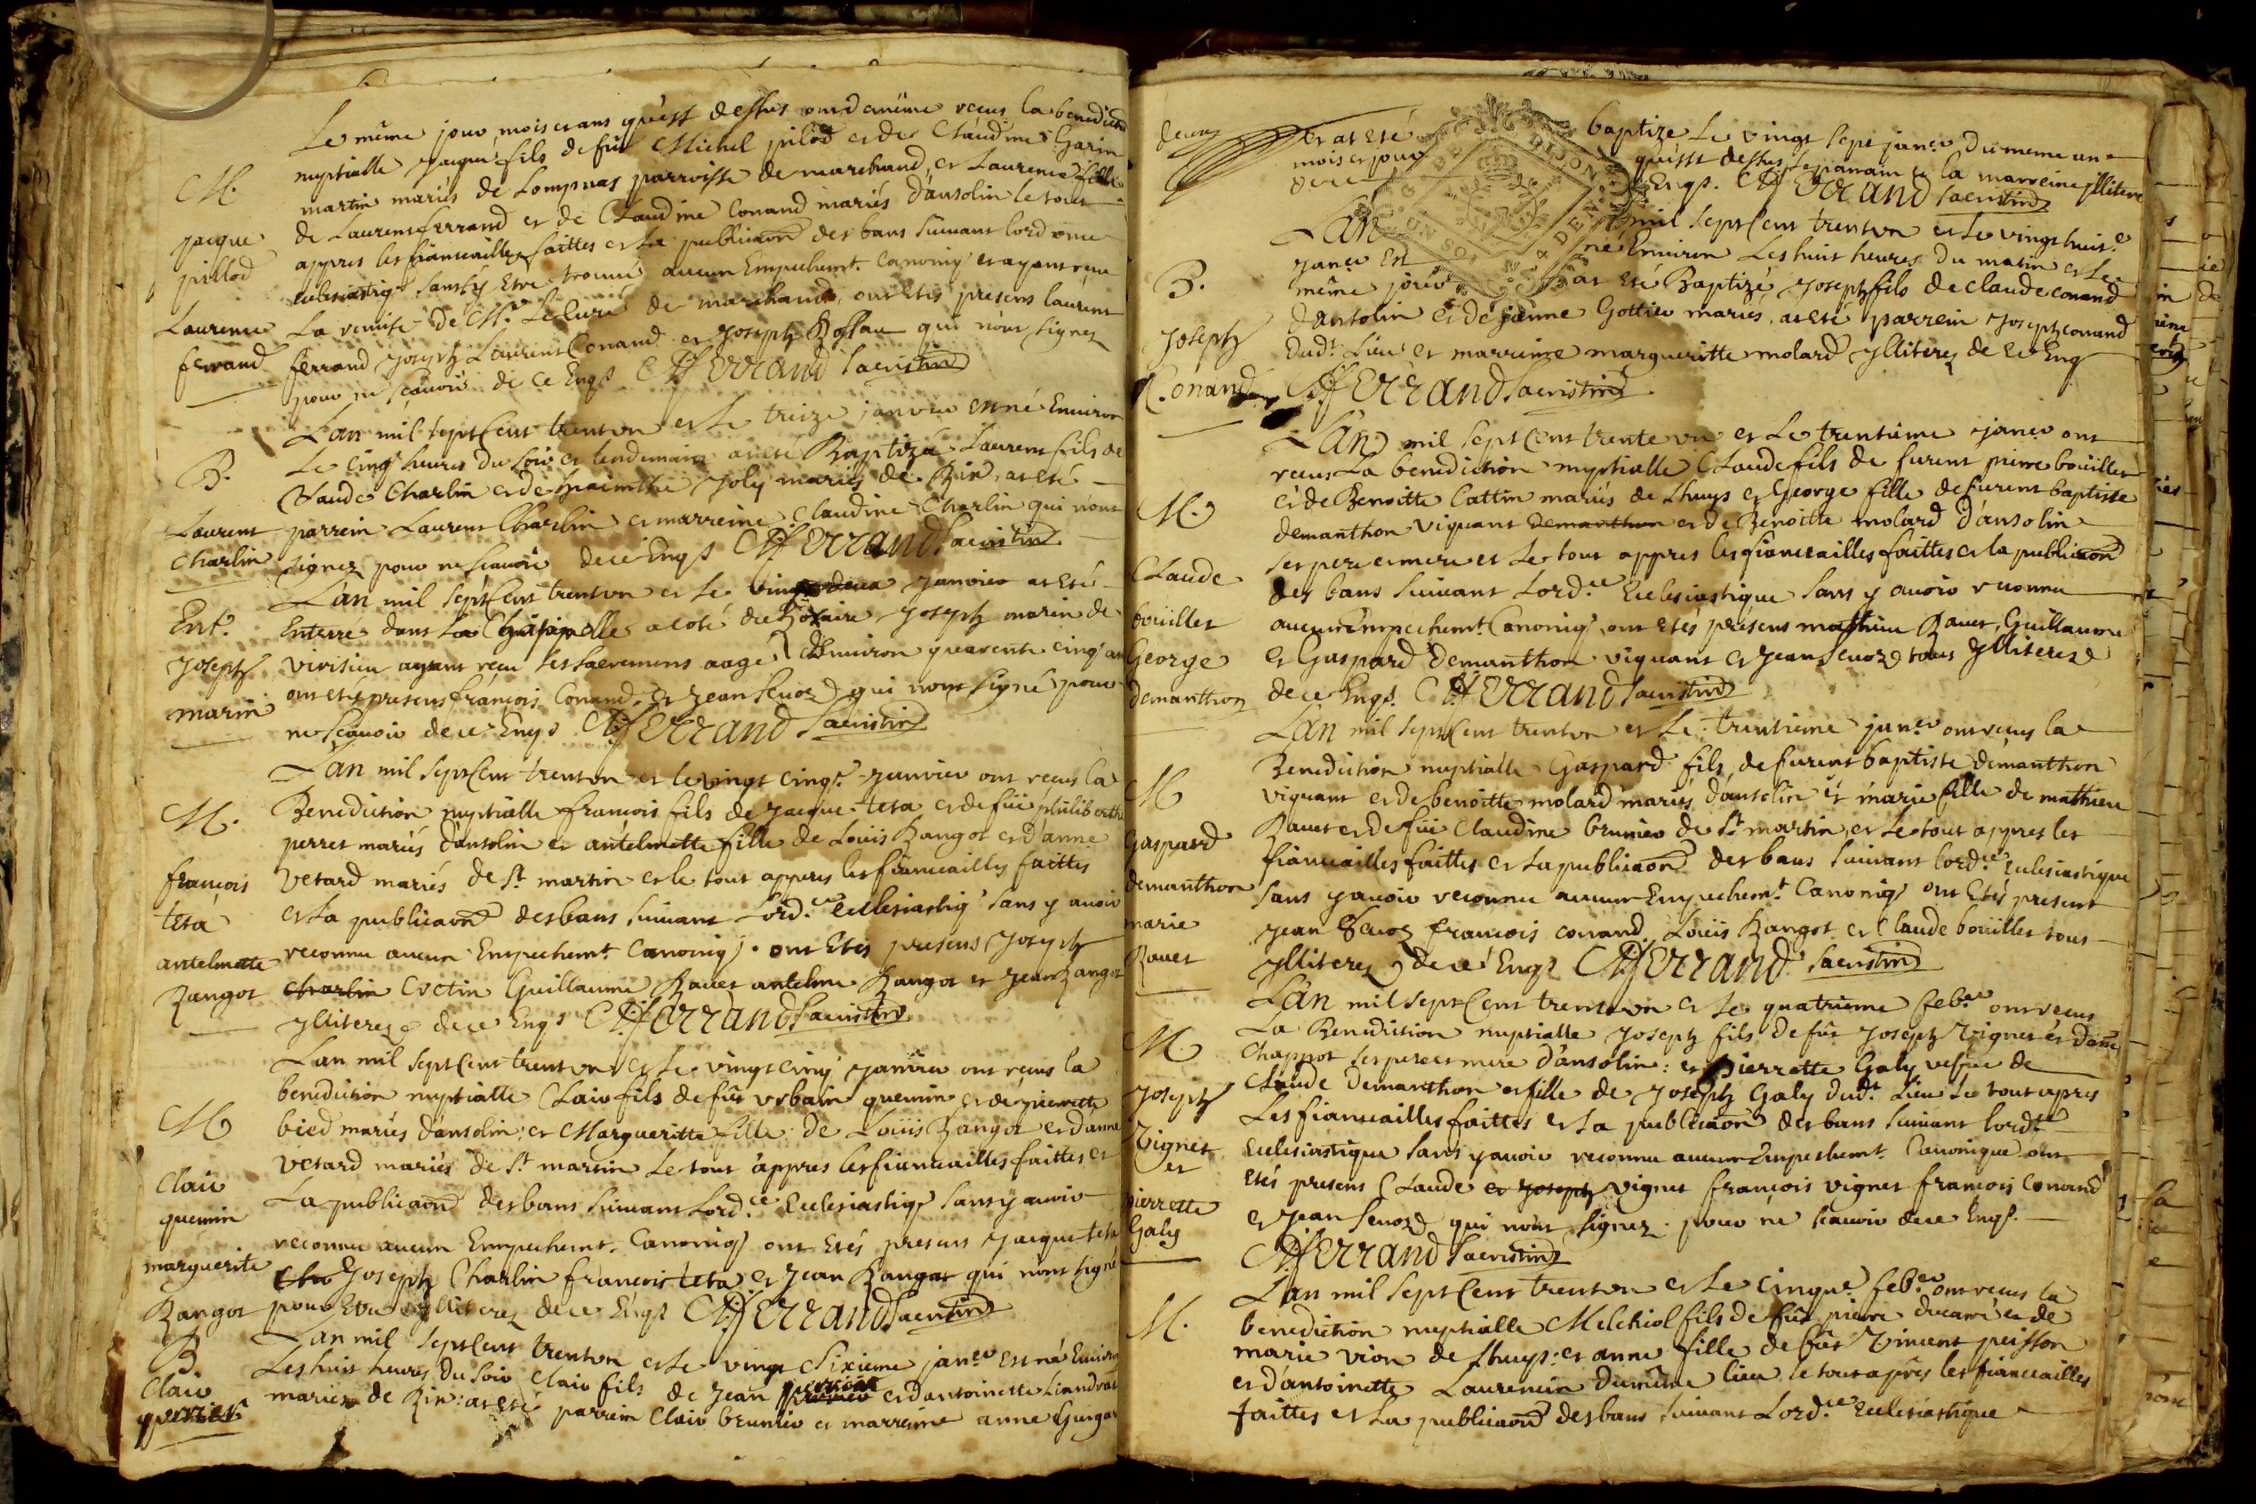 Le même jour mois et ans qu'est dessus ont de même receus la benedict
M. nuptialle Jacque fils de fût Michel pilod et de Claudine Garin
martin mariés de Lompnas parroisse de marchand et Laurence fille
Jacque de Laurent ferrand et de Claudine Conand mariés d'ansolin le tout
pillod appres les fiancailles faittes et la publicaon des bans suivant lordonne
eclesiastiq sans s'y Etre trouvé aucun Empechemt. Canoniq et ayant veu
Laurence La remise de Mr. Le Curé de marchand, ont Etés presens laurent
ferrand ferrand Joseph Laurent Conand et Joseph qui n'ont signez
pour ne sçavoir de ce Enqs CHFerrand Sacristin
L'an mil sept Cent trent un et Le treize janvier est né Environ
B. Le cinq heures du soir et lendemain at eté Baptizé Laurent fils de
Claude Charlin et de Joly mariés de Rix, at eté
Laurent parrein Laurent Charlin et marreine Claudine Charlin qui n'ont
Charlin signez pour ne scavoir de ce Enqs CHFerrand Sacristin
L'an mil sept Cent trent un et Le vingt deux Janvier at Eté
Ent. Enterré dans La Chappelle a coté du Rosaire Joseph marin de
Joseph virisieu ayant receu les sacremens aagé d'Environ quarente cinq ans
marin ont etés presens françois Conand et Jean Sevoz qui n'ont signé pour
ne sçavoir de ce Enqs CHFerrand Sacristin
L'an mil sept Cent trent un et le vingt cinqe. Janvier ont receus la
M. Benediction nuptialle francois fils de Jacque teta et de fûe philiberthe
perret mariés d'ansolin et antelmette fille de Louis Bangot et d'anne
francois vetard mariés de St. martin et le tout appres les fiancailles faittes
teta et La publicaon des bans suivant Lord.ce ecclesiastiq sans y avoir
antelmette reconnu aucun Empechemt. Canoniq. ont Etés presens Joseph
Bangot charlin Coctin Guillaume Ravet antelme Bangot et Jean Bangot
Jlliterez de ce Enqs CHFerrand Sacristin
L'an mil sept Cent trent un et Le vingt cinq Janvier ont receus la
M benediction nuptialle Clair fils de fût urbain quenin et de pierrette
bied mariés d'ansolin: et Margueritte fille de Louis Bangot et d'anne
vetard mariés de St. martin Le tout appres les fiancailles faittes et
Clair La publicaon des bans suivant Lord.ce Eclesiastiq sans y avoir
quenin reconnu aucun Empechemt. Canoniq ont Etés presens Jacque teta
marguerite Joseph Charlin francois teta et Jean Bangot qui n'ont signé
Bangot pour Etre jlliterez de ce Enqs CHFerrand Sacristin
B. L'an mil sept Cent trent un et Le vingt Sixieme janer. est né Environ
Clair Les huit heures du soir Clair fils de Jean perrier et d'antoinette
perrier mariez de Rix: at eté parrein Clair brunier et marreine anne
et at eté baptize Le vingt sept janer. du meme an
mois et jour qu'est dessus Le parrain et la marreine jlliterez
de ce Enqs. CHFerrand Sacristin
G. DE DIJON
L'an mil sept Cent trent un et Le vingt huite
B. janer Est né Environ Les huit heures du matin et Le
même jour at eté Baptizé Joseph fils de claude conand
Joseph d'ansolin et de janne Gottier mariés, at eté parrein Joseph conand
Conand dudt. Lieu et marreine margueritte molard Jlliterez de ce Enq
CHFerrand Sacristin
L'an mil sept Cent trente un et Le trentieme janer ont
receus La benediction nuptialle Claude fils de furent pierre bouillet
M. et de Benoitte Cattin mariés de Lhuys et George fille de furent baptiste
demanthon viquant demanthon et de Benoitte molard d'ansolin
Claude ses pere et mere et Le tout appres les fiancailles faittes et la publicaon
des bans suivant Lord.ce Eclesiastique sans y avoir reconnu
bouillet aucun Empechemt. Canoniq, ont Etés présens mathieu Ravet, Guillaume
George et Gaspard Demanthon viquant et Jean Sevoz tous Jlliterez
demanthon de ce Enqs. CHFerrand Sacristin
L'an mil sept Cent trent un et Le trentieme janer ont receus la
M Benediction nuptialle Gaspard fils de furent baptiste demanthon
viquant et de benoitte molard mariés d'ansolin et marie fille de mathieu
Gaspard Ravet et de fûe Claudine brunier de St. martin et Le tout appres les
demanthon fiancailles faittes et La publicaon des bans suivant lord.ce Eclesiastique
sans y avoir reconnu aucun Empechemt. Canoniq ont Etés present
marie Jean Sevoz francois conand, Louis Bangot et Claude bouillet tous
Ravet Jlliterez de ce Enqs CHFerrand Sacristin
L'an mil sept Cent trent un et Le quatrieme feb.er ont receus
M La Benediction nuptialle Joseph fils de fût Joseph Vignet et d'anne
Chappot ses pere et mere d'ansolin: et pierrette Galy vesve de
Joseph Claude Demanthon et fille de Joseph Galy dudt. Lieu Le tout apres
Les fiancailles faittes et La publicaon des bans suivant lord.ce
Vignet Eclesiastique sans y avoir reconnu aucun Empechemt. Canonique ont
et Etés presens Claude et Joseph vignet francois vignet francois Conand
pierrette et Jean Sevoz qui n'ont signez. pour ne scavoir de ce Enqs.
Galy CHFerrand Sacristin
L'an mil sept Cent trent un et Le cinque feb.er ont receus la
M. benediction nuptialle Melchiol fils de fût pierre ducarré et de
marie vion de Lhuys: et anne fille de fût Vincent peisson
et d'antoinette Laurencin du même lieu le tout après les fiancailles
faittes et La publicaon des bans suivant Lord.ce Eclesiastique